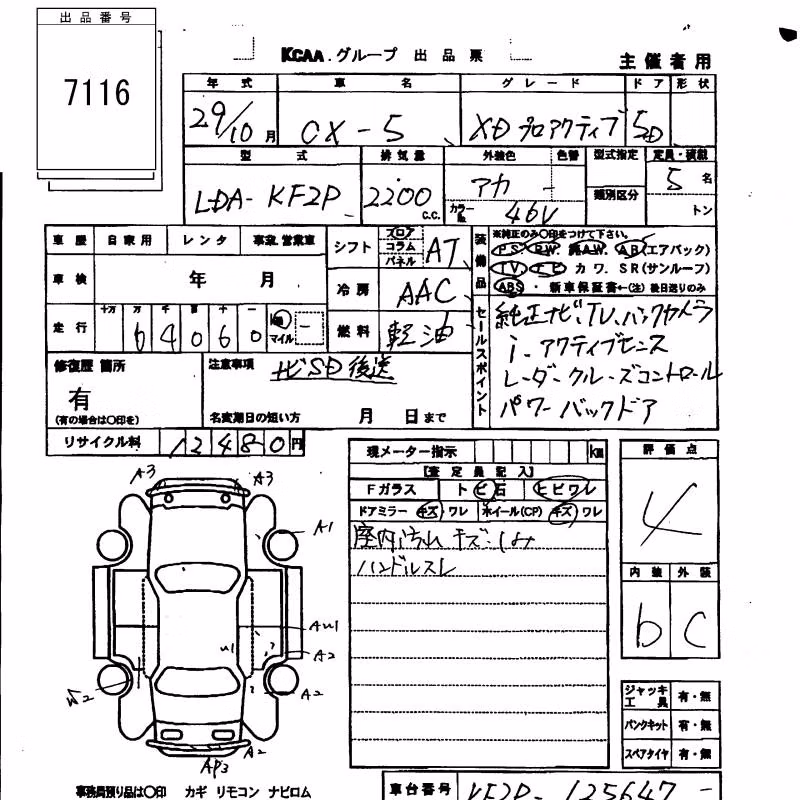 出品番号
7116
KCAA.グループ 出品票
主催者用
年式 車名 グレード ドア 形状
29/10月 CX-5 XD プロアクティブ 5D
型式 排気量 外装色 色替 型式指定 定員・積載
LDA-KF2P 2200 C.C. アカ - 類別区分 5名
カラーNo. 46V トン
車歴 自家用 レンタ 事業.営業車
車検 年 月
走行 十万 万 千 百 十 一
64060 km マイル -
シフト フロア コラム パネル AT
冷房 AAC
燃料 軽油
装備品
※純正のみ○印をつけて下さい。
P.S. P.W. 純A.W. A.B(エアバック)
T.V ナビ カワ. S.R(サンルーフ)
ABS ・ 新車保証書←(注)後日送りのみ
セールスポイント
純正ナビ、TV、バックカメラ
i.アクティブセンス
レーダークルーズコントロール
パワーバックドア
修復歴 箇所
有
(有の場合は○印を)
注意事項 ナビSD後送
名変期日の短い方 月 日まで
リサイクル料 12480円
現メーター指示 km
【査定員記入】
Fガラス トビ石 ヒビワレ
ドアミラー キズ.ワレ ホイール(CP) キズ.ワレ
室内汚れ キズ.シミ
ハンドルスレ
評価点
4
内装 外装
b C
ジャッキ工具 有・無
パンクキット 有・無
スペアタイヤ 有・無
A3 A3
A1
AU1
U1
A2
A2
W2
A2
AP3
事務局預り品は○印 カギ リモコン ナビロム
車台番号 KF2P-125647 -